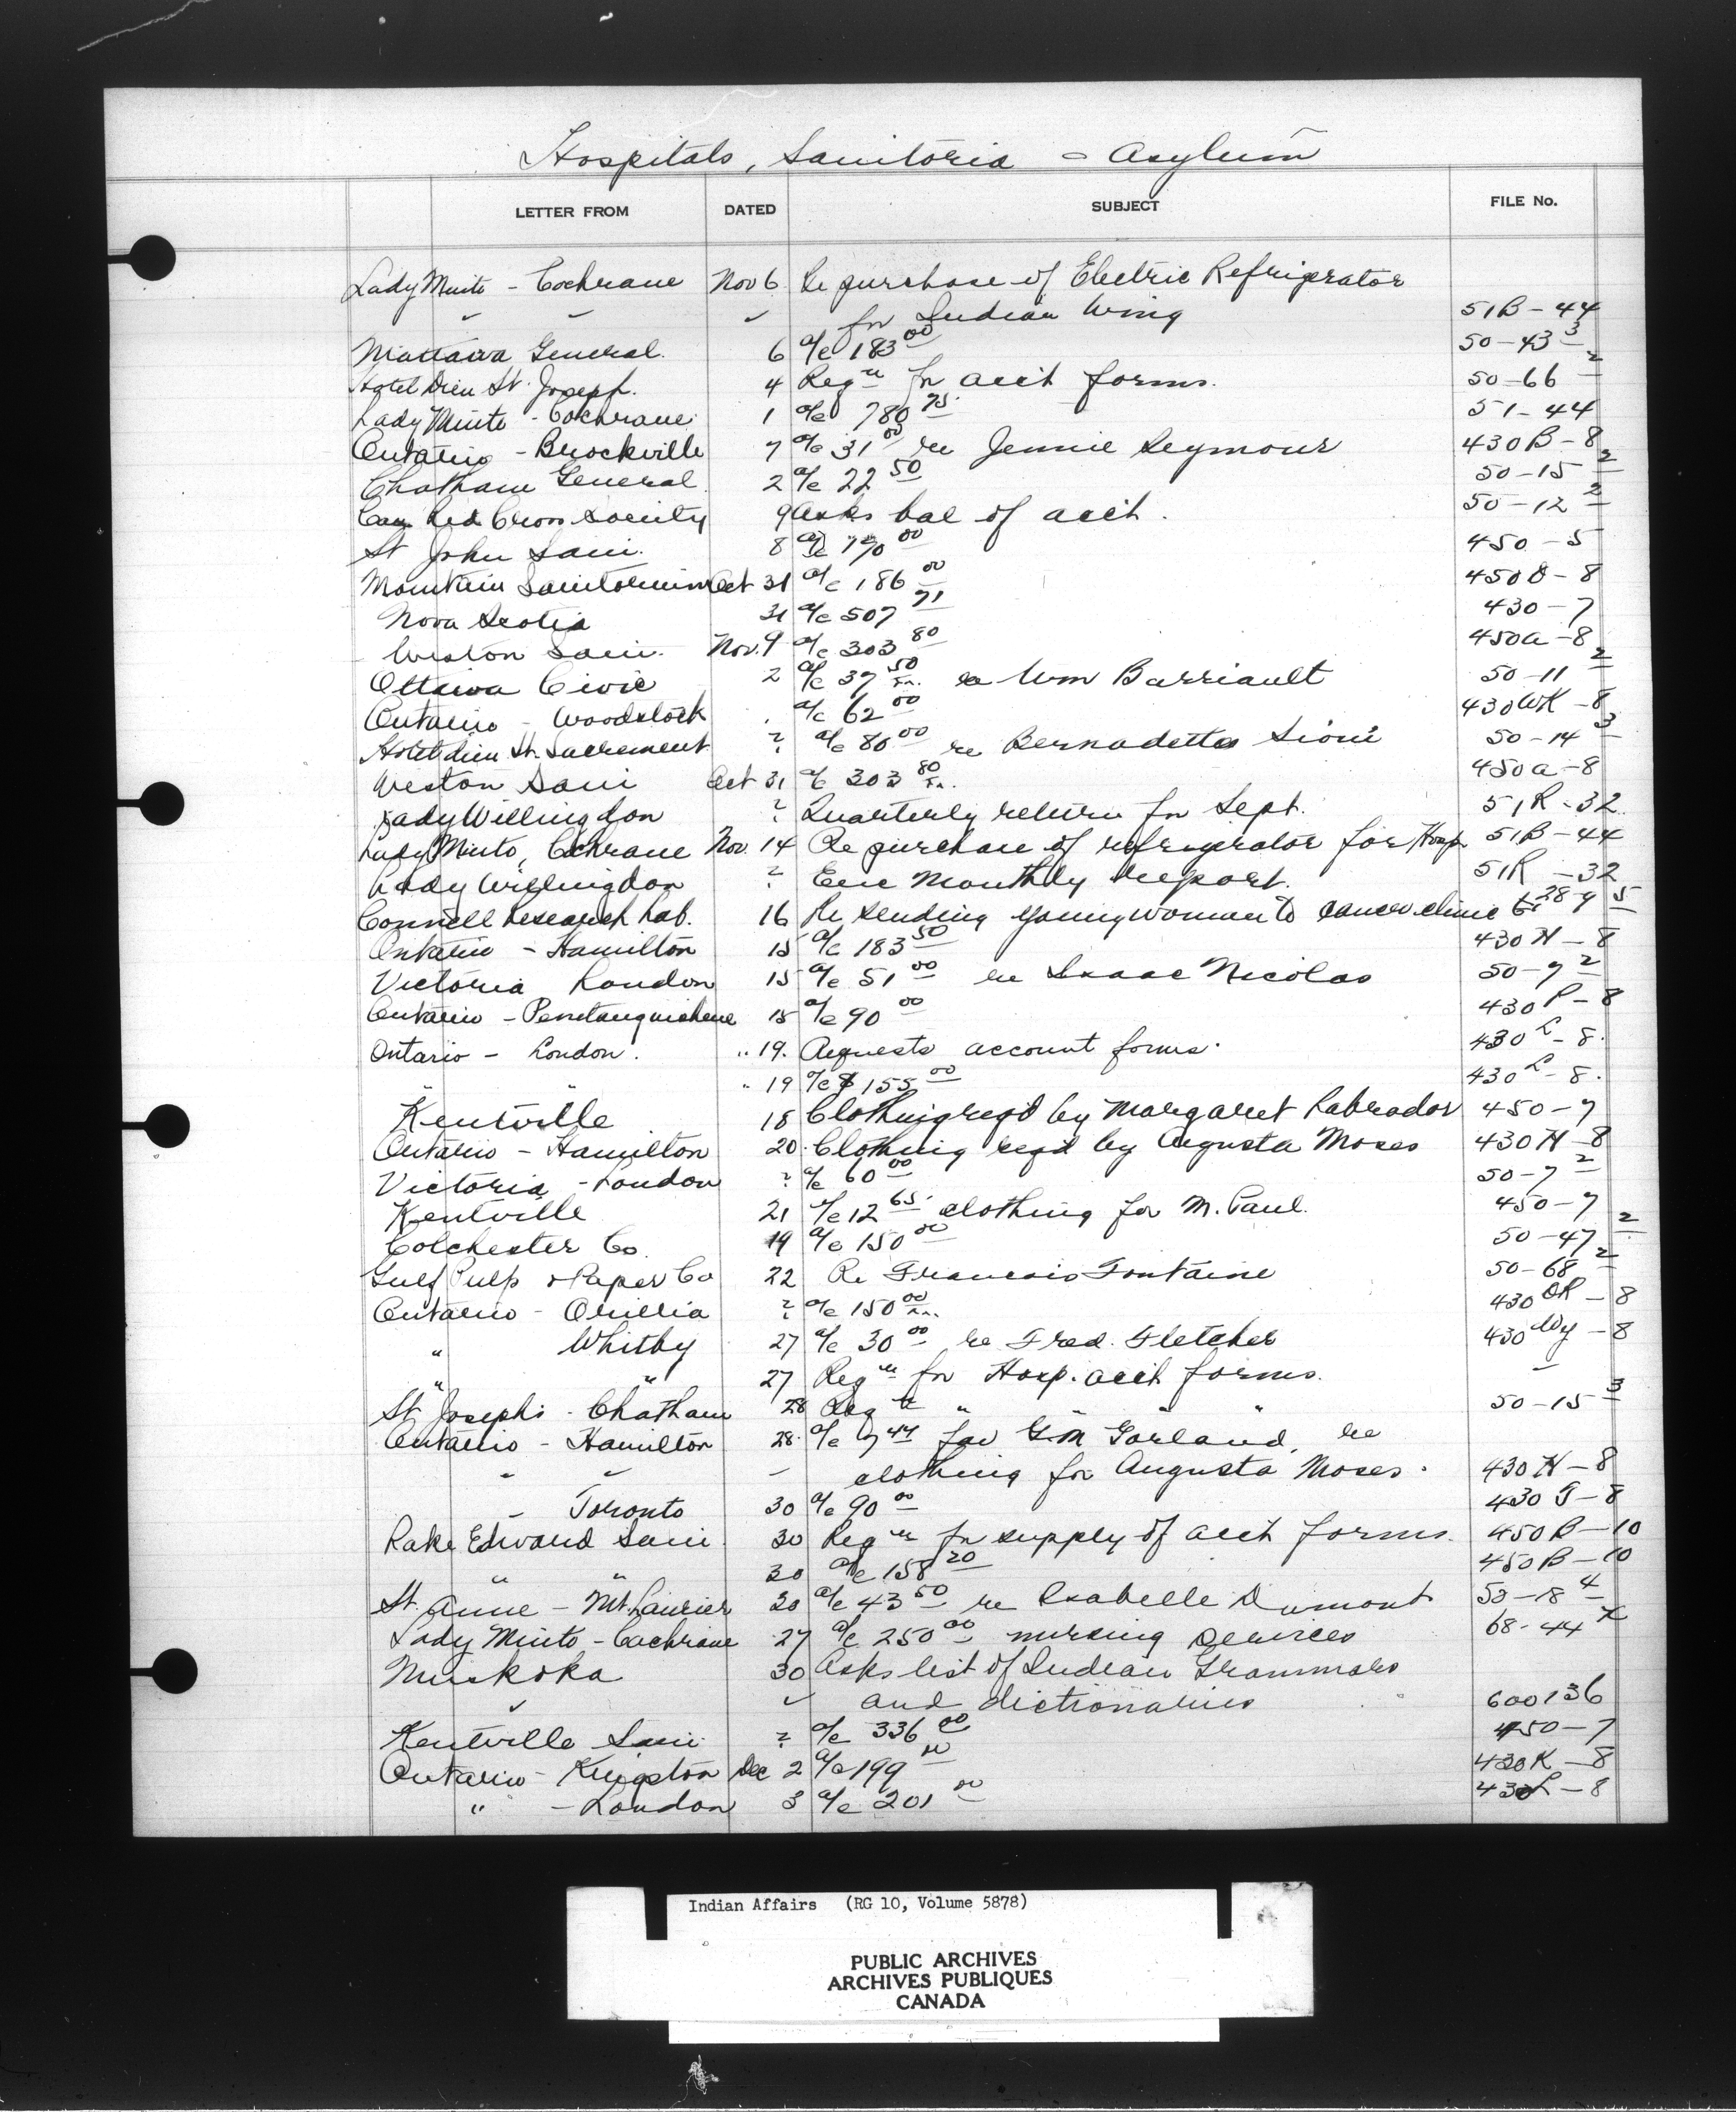 Hospitals, Sanitoria - Asylum
LETTER FROM DATED SUBJECT FILE No.
Lady Minto - Cochrane Nov 6 Re purchase of Electric Refrigerator
" " " for Indian Wing 51B-44
Mattawa General. 6 a/c 183 00 50-43 3
Hotel Dieu St. Joseph. 4 Reqn for acct forms. 50-66 2
Lady Minto - Cochrane 1 a/c 780 75. 51-44
Ontario - Brockville 7 a/c 31 00 re Jennie Seymour 430B-8
Chatham General 2 a/c 22 50 50-15 2
Can Red Cross Society 9 asks bal of acct. 50-12 2
St John Sani. 8 a/c 00 450-5
Mountain Sanitorium Oct 31 a/c 186 00 450D-8
Nova Scotia 31 a/c 507 71 430-7
Weston Sani. Nov. 9 a/c 303 80 450a-8
Ottawa Civic 2 a/c 37 50 re Wm Barriault 50-11 2
Ontario - Woodstock . a/c 62 00 430WK-8
Hotel dieu St. Sacrement ? a/c 80 00 re Bernadette Sioui 50-14 3
Weston Sani Oct 31 a/c 303 80 450a-8
Lady Willingdon ? Quarterly return for Sept. 51R-32
Lady Minto, Cochrane Nov. 14 Re purchase of refrigerator for Hosp 51B-44
Lady Willingdon ? Enc Monthly Report. 51R-32
Connell Research Lab. 16 Re sending young woman to cancer clinic 5
Ontario - Hamilton 15 a/c 183 50 430H-8
Victoria London 15 a/c 51 00 re Isaac Nicolas 50-7 2
Ontario - Penetanguishene 15 a/c 90 00 430P-8
Ontario - London. " 19. Requests account forms. 430L-8.
" " " 19 a/c $155 00 430L-8.
Kentville 18 Clothing reqd by Margaret Labrador 450-7
Ontario - Hamilton 20. Clothing reqd by Augusta Moses 430H-8
Victoria - London ? a/c 60 00 50-7 2
Kentville 21 a/c 12 65. clothing for M. Paul. 450-7
Colchester Co. 19 a/c 150 00 50-47 2
Gulf Pulp & Paper Co 22 Re Francois Fontaine 50-68 2
Ontario - Orillia ? a/c 150 00 430OR-8
" Whitby 27 a/c 30 00 re Fred. Fletcher 430Wy-8
" " 27 Reqn for Hosp. acct forms. -
St Josephs - Chatham 28 Reqn " " " 50-15 3
Ontario - Hamilton 28. a/c 7 44 fav G.M Garland, re
" " " clothing for Augusta Moses. 430H-8
" Toronto 30 a/c 90 00 430T-8
Lake Edward Sani. 30 Reqn for supply of acct forms. 450B-10
" " 30 a/c 158 20 450B-10
St. Anne - Mt. Laurier 30 a/c 43 50 re Isabelle Dumont 50-18 4
Lady Minto - Cochrane 27 a/c 250 00 nursing services 68-44 X
Muskoka 30 Asks list of Indian Grammars
" " and dictionaries 600136
Kentville Sani. ? a/c 336 00 450-7
Ontario - Kingston Dec 2 a/c 199 00 430K-8
" - London 3 a/c 201 00 430L-8
Indian Affairs (RG 10, Volume 5878)
PUBLIC ARCHIVES
ARCHIVES PUBLIQUES
CANADA